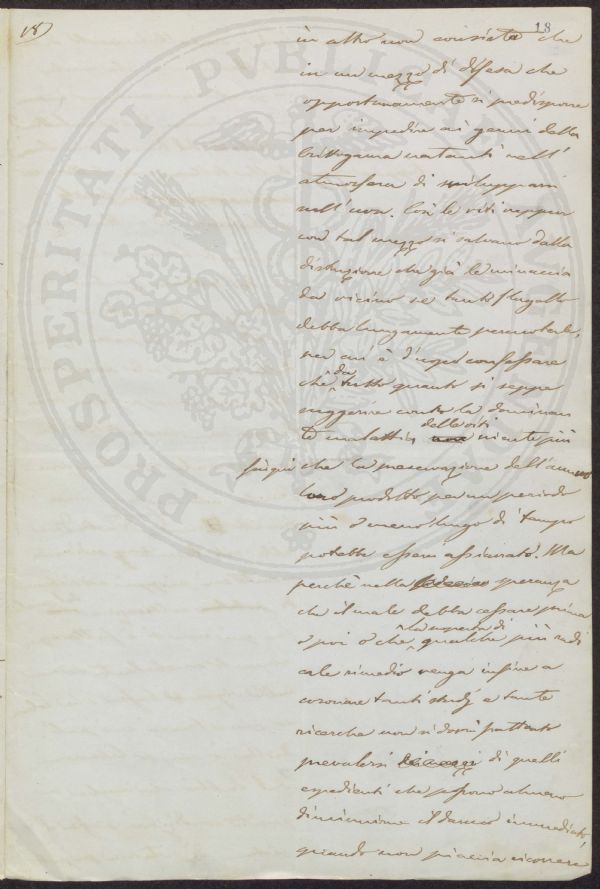 18) 18
in altro non consista che
in un mezzo di difesa che
opportunamente si predispone
per impedire ai germi della
crittogama natanti nell'
atmosfera di svilupparsi
nell'uva. Così le viti eppur
con tal mezzo si salvano dalla
distruzione che già le minaccia
da vicino se tanto flagello
debba lungamente perdurare,
per cui è d'uopo confessare
che da tutto quanto si seppe
suggerire contro la dominan
te malattia delle viti niente più
fin qui che la preservazione dell'annuo
loro prodotto per un periodo
più o meno lungo di tempo
potrebbe essere assicurato. Ma
perchè nella speranza
che il male debba cessare prima
o poi o che la scoperta di qualche più radi
cale rimedio venga infine a
coronare tanti studj e tante
ricerche non si dovrà pertanto
prevalersi di quelli
espedienti che possono almeno
diminuirne il danno immediato,
quando non piaccia ricorrere
PROSPERITATI PVBLICAE AVGENDAE